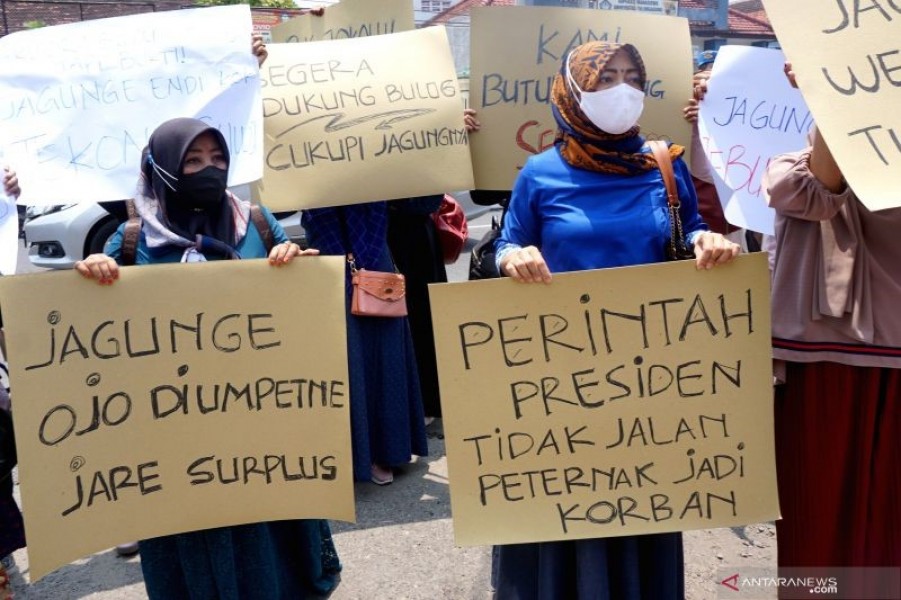 JAGUNGE ENDI
TEKONO
SEGERA
DUKUNG BULOG
CUKUPI JAGUNGNYA
KAMI
BUTUH
JAGUNG
JAGUNGE
OJO DIUMPETNE
JARE SURPLUS
PERINTAH
PRESIDEN
TIDAK JALAN
PETERNAK JADI
KORBAN
ANTARANEWS
.com